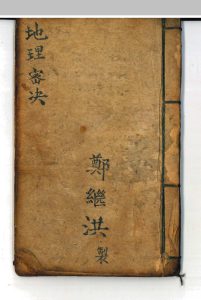 地理審决
鄭繼洪製